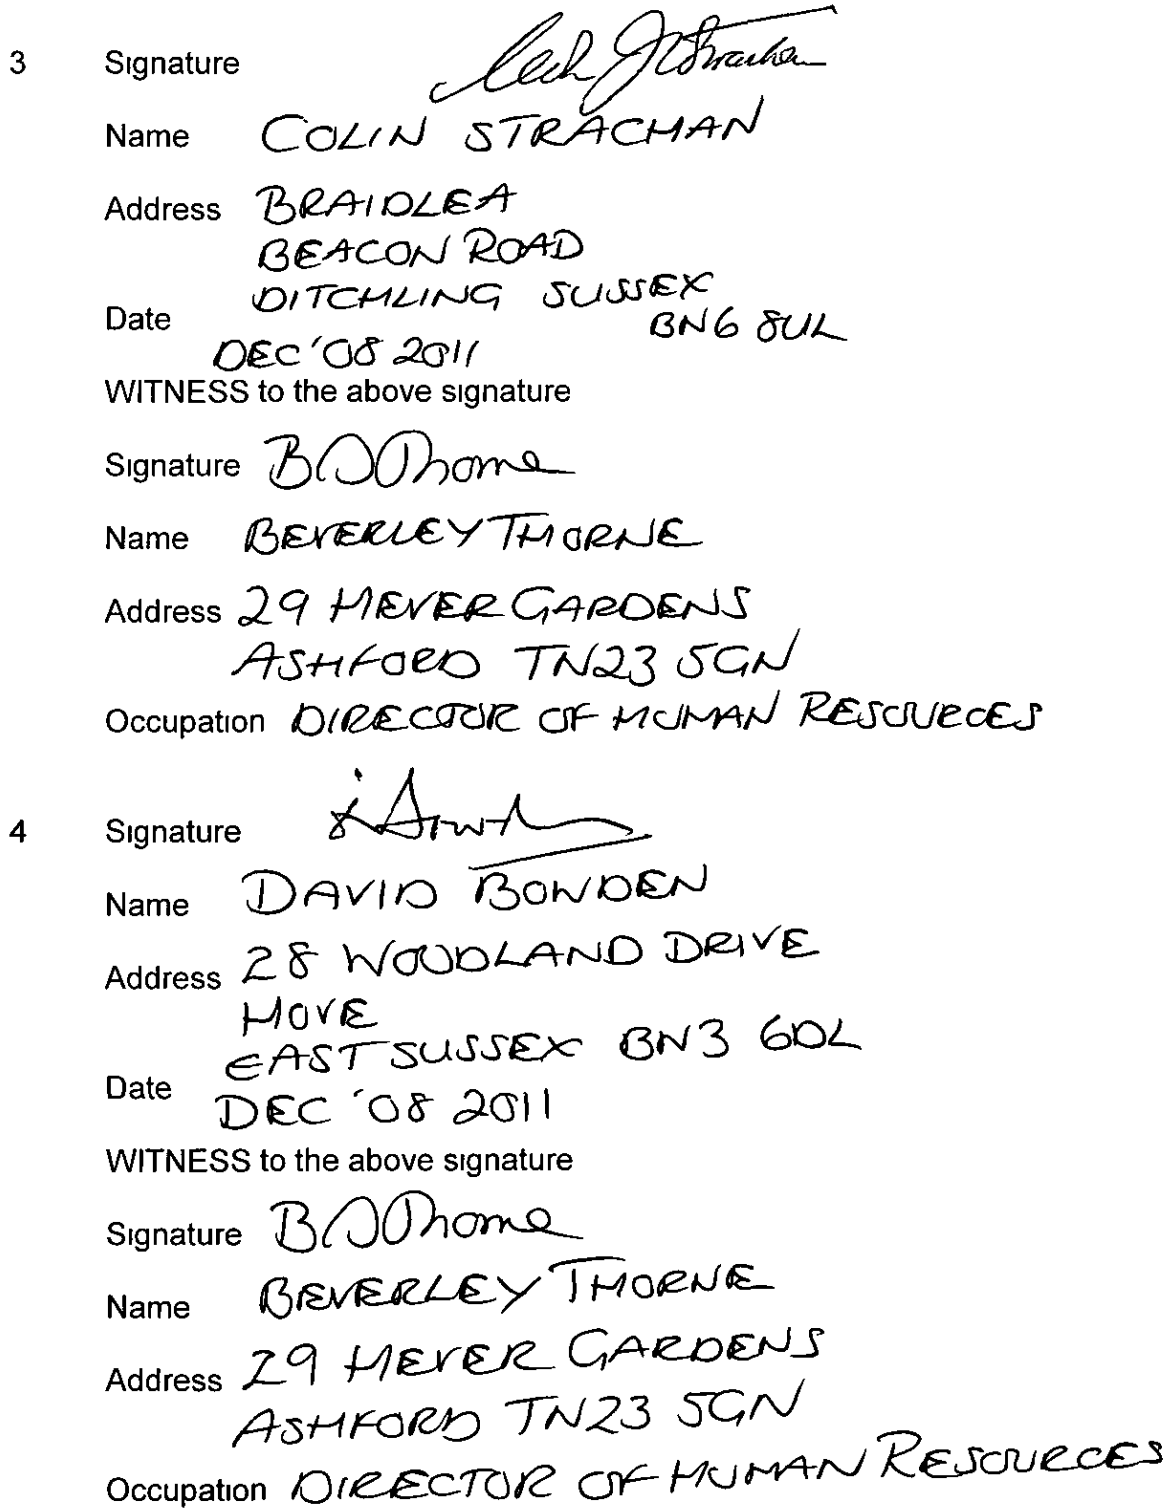 3 Signature
Name COLIN STRACHAN
Address BRAIDLEA
BEACON ROAD
DITCHLING SUSSEX
BN6 8UL
Date
DEC '08 2011
WITNESS to the above signature
Signature B Thorne
Name BEVERLEY THORNE
Address 29 HEVER GARDENS
ASHFORD TN23 5GN
Occupation DIRECTOR OF HUMAN RESOURCES
4 Signature
Name DAVID BOWDEN
Address 28 WOODLAND DRIVE
HOVE
EAST SUSSEX BN3 6DL
Date
DEC '08 2011
WITNESS to the above signature
Signature B Thorne
Name BEVERLEY THORNE
Address 29 HEVER GARDENS
ASHFORD TN23 5GN
Occupation DIRECTOR OF HUMAN RESOURCES